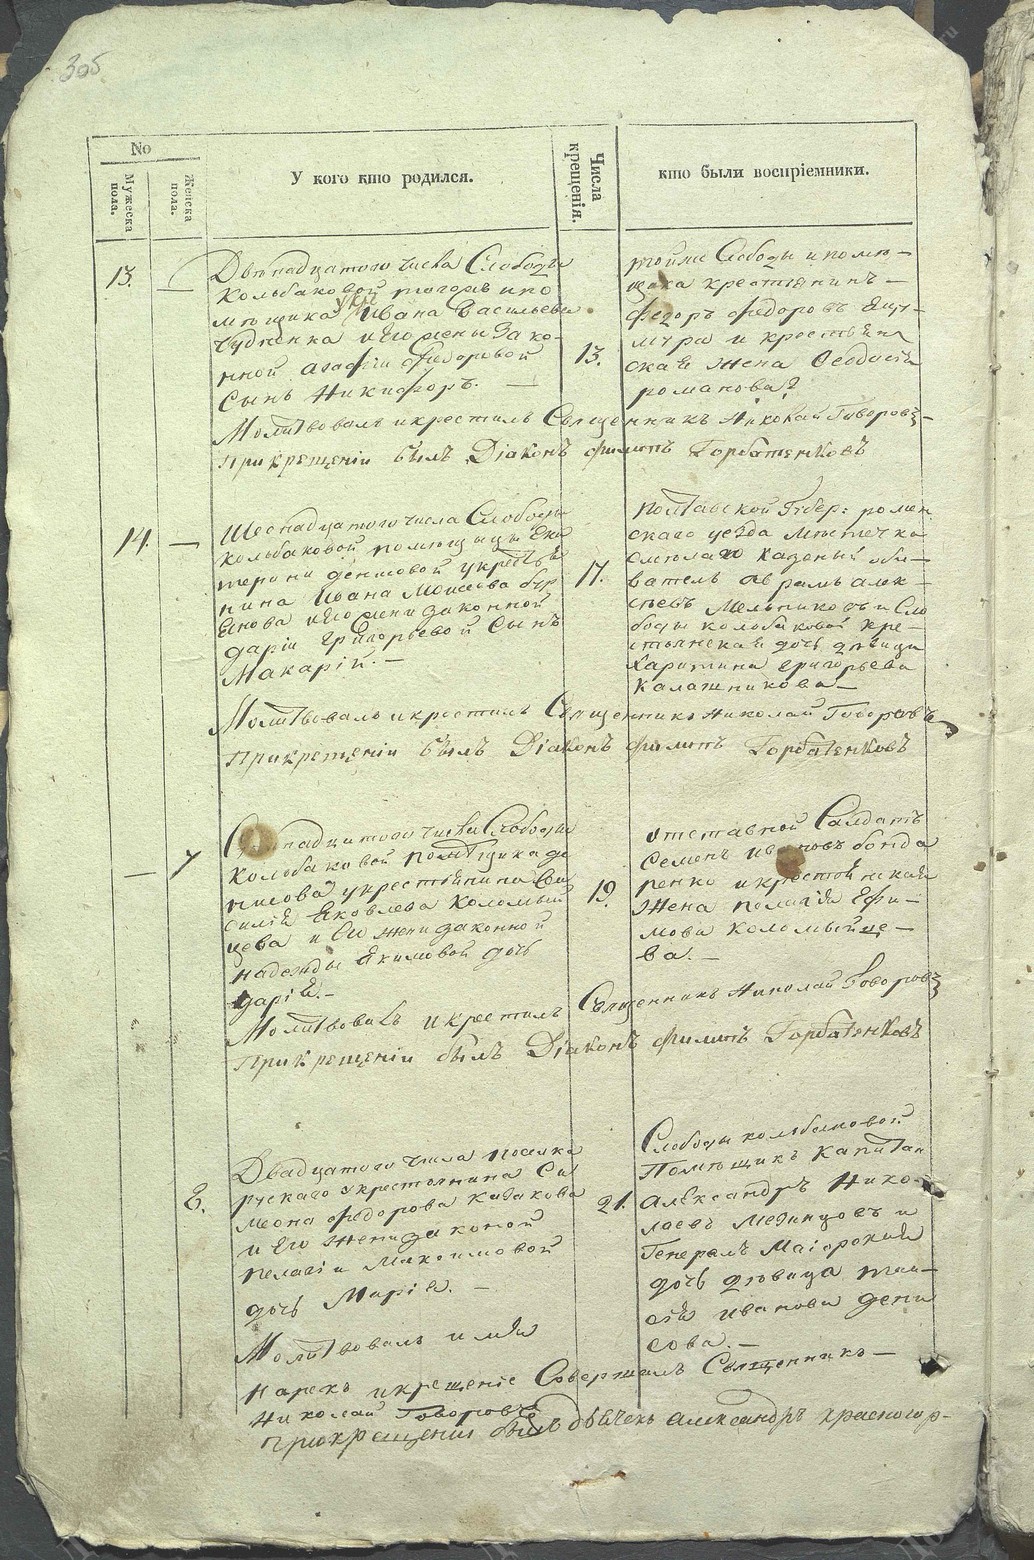 305
No
Мужеска пола.
Женска пола.
У кого кто родился.
Числа крещенія.
кто были воспріемники.
13. —
Двенадцатого числа Слободы
Колбаковой тогожъ по
мещика укре Ивана Васильева
Чудненка и его жены зако-
нной Агафіи Федоровой
Сынъ Никифоръ. —
13.
тойже Слободы и поме-
щика крестьянинъ
Федоръ Федоровъ
и крестьян
ская жена Феодосія
романова
Молитвовалъ и крестилъ Священникъ Николай Говоровъ
При крещеніи былъ Діаконъ Филипъ Горбатенковъ
14. —
Шеснадцатого числа Слободы
Колбаковой помещицы Ека
терины денисовой укрестья
нина Ивана Моисеева
и его жены законной
даріи Григорьевой Сынъ
Макарій. —
17.
Полтавской Губер: ромен
скаго уезда местечка
Смелаго казеный обы-
ватель Абрамъ алек-
сеевъ Мельниковъ и Сло
боды колбаковой кре-
стьянская дочь девица
Харитина григорьева
Калашникова —
Молитвовалъ и крестилъ Священникъ Николай Говоровъ
При крещеніи былъ Діаконъ Филипъ Горбатенковъ
— 7
числа Слободы
Колбаковой помещика де
нисова укрестьянина Ва
силія Яковлева Коломый
цева и Его жены законной
надежды Якимовой дочь
дарія. —
19.
отставной Салдатъ
Семенъ Ивановъ бонда
ренко и крестьянская
жена пелагія Ефи-
мова Коломыйце-
ва. —
Молитвовалъ и крестилъ Священникъ Николай Говоровъ
При крещеніи былъ Діаконъ Филипъ Горбатенковъ
8.
Двадцатого числа поселка
рускаго укрестьянина Си
меона Федорова Казакова
и Его жены законой
пелагіи Максимовой
дочь Марія. —
21.
Слободы колбаковой
Помещикъ Капитан
Александръ Нико-
лаевъ Мединцовъ и
Генералъ Маіорская
дочь девица таи-
сія иванова дени
сова. —
Молитвовалъ имя
нарекъ и крещеніе Совершилъ Священникъ —
Николай Говоровъ
При крещении былъ дьячекъ Александръ красногор-